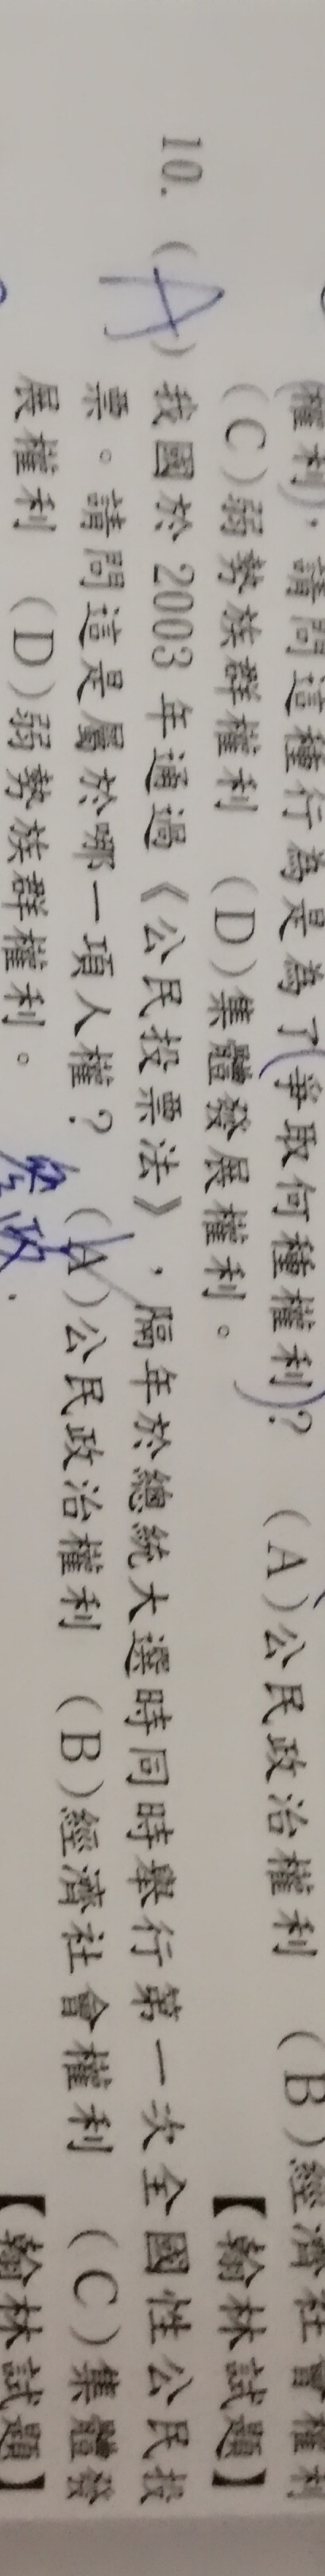 權利), 請問這種行為是為了(爭取何種權利)? (A)公民政治權利 (B)經濟社會權利
(C)弱勢族群權利 (D)集體發展權利。 【翰林試題】
10. (A)我國於 2003 年通過《公民投票法》，隔年於總統大選時同時舉行第一次全國性公民投
票。請問這是屬於哪一項人權? (A)公民政治權利 (B)經濟社會權利 (C)集體發
展權利 (D)弱勢族群權利。 參政 【翰林試題】